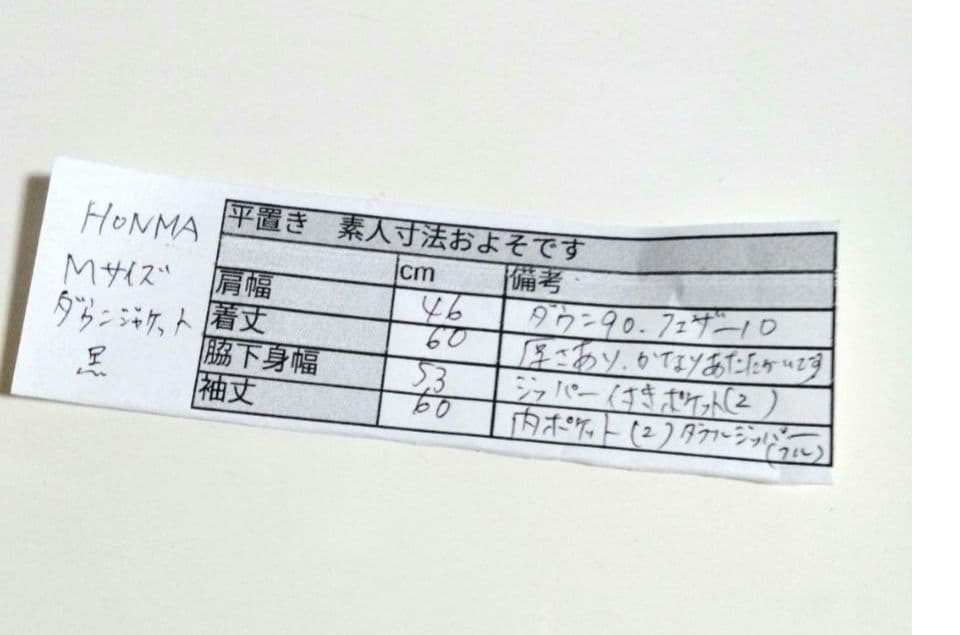 HONMA
Mサイズ
ダウンジャケット
黒
平置き 素人寸法およそです
cm 備考
肩幅 46 ダウン90.フェザー10
着丈 60 厚さあり.かなりあたたかいです
脇下身幅 53 ジッパー付きポケット(2)
袖丈 60 内ポケット(2)ダブルジッパー
(フル)